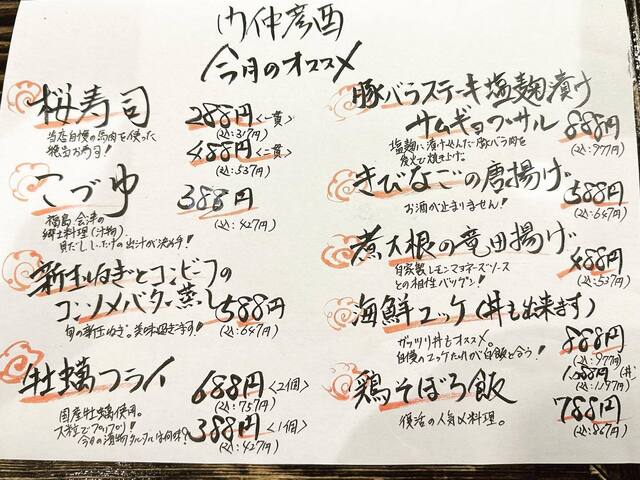 内仲彦酉
今月のオススメ
桜寿司 288円<一貫>
(込:317円)
当店自慢の馬肉を使った
絶品お寿司!
488円<二貫>
(込:537円)
こづゆ 388円
(込:427円)
福島 会津の
郷土料理(汁物)
貝だし、しいたけの出汁が決め手!
新玉ねぎとコンビーフの
コンソメバター蒸し 588円
(込:647円)
旬の新玉ねぎ。美味過ぎます!
牡蠣フライ 688円<2個>
(込:757円)
国産牡蠣使用。
大粒でプリプリ!
今日の漬物タルタルは何味?
388円<1個>
(込:427円)
豚バラステーキ塩麹漬け
サムギョプサル 888円
(込:977円)
塩麹に漬け込んだ豚バラ肉を
炭火で焼き上げ。
きびなごの唐揚げ 588円
(込:647円)
お酒が止まりません!
煮大根の竜田揚げ 488円
(込:537円)
自家製レモンマヨネーズソース
との相性バツグン!
海鮮ユッケ(丼も出来ます)
888円
(込:977円)
ガッツリ丼もオススメ。
自慢のユッケたれが白飯と合う!
1,088円(丼)
(込:1,197円)
鶏そぼろ飯 788円
(込:867円)
復活の人気〆料理。